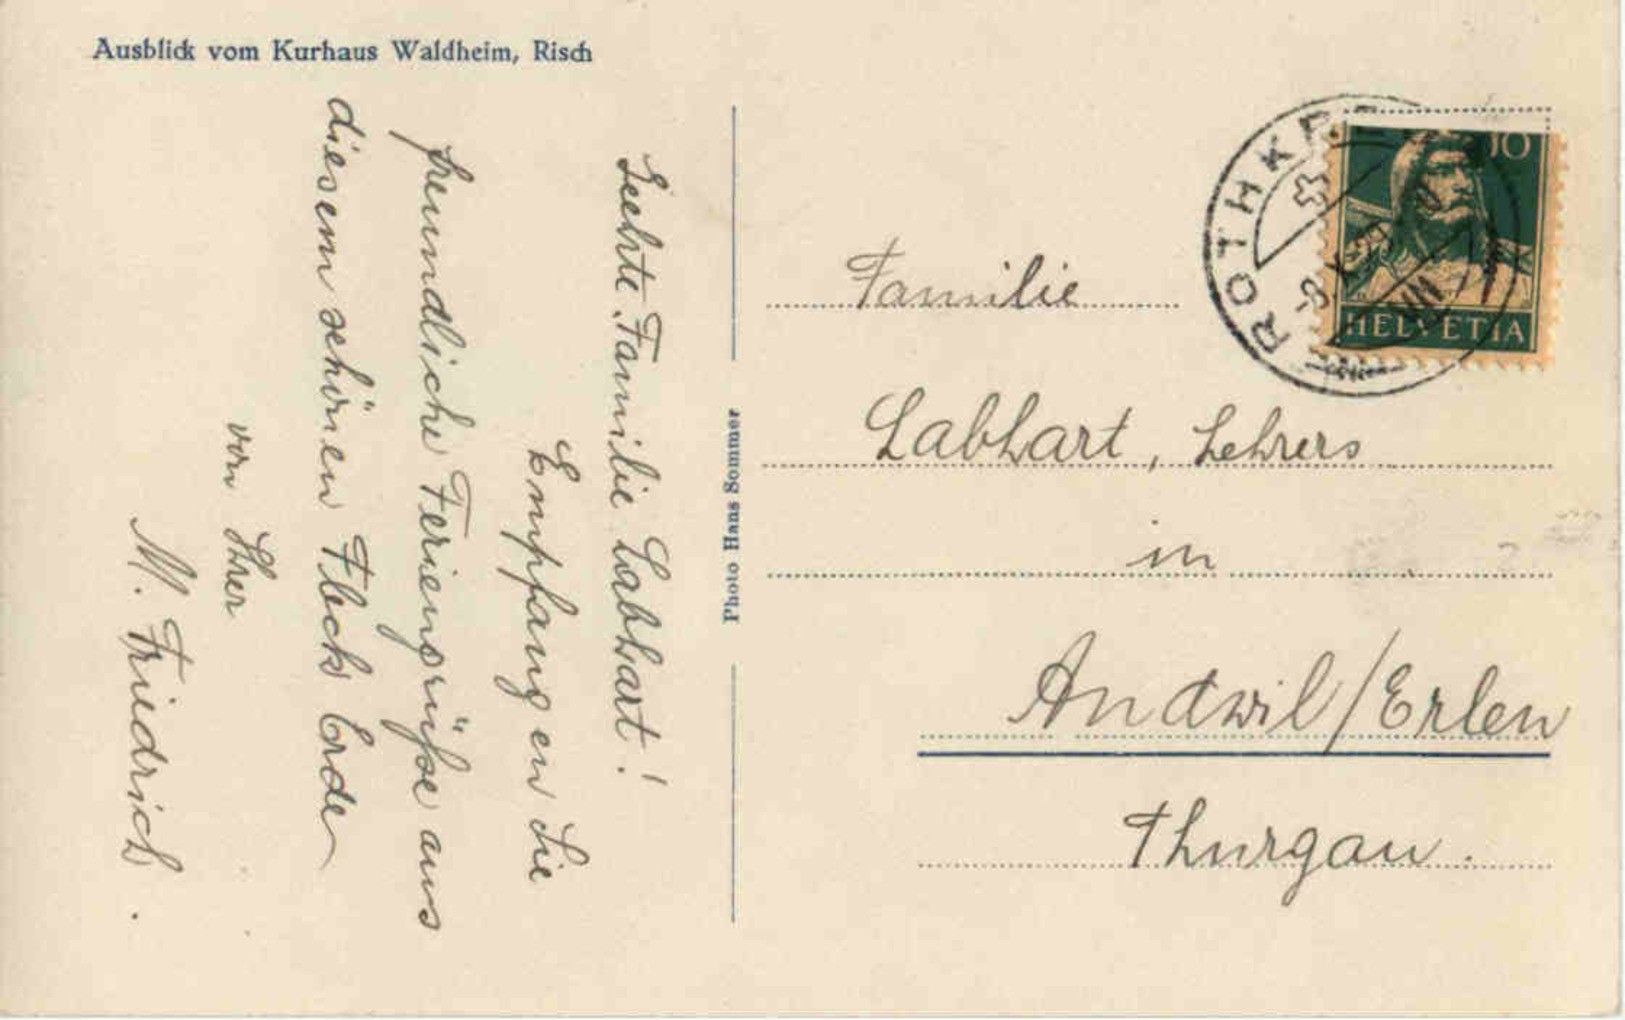 Ausblick vom Kurhaus Waldheim, Risch
Geehrte Familie Labhart!
Empfangen Sie
freundliche Feriengrüße aus
diesem schönen Fleck Erde
von Ihrer
M. Friedrich.
Photo Hans Sommer
ROTHKR
10
HELVETIA
Familie
Labhart, Lehrers
in
Andwil/Erlen
Thurgau.